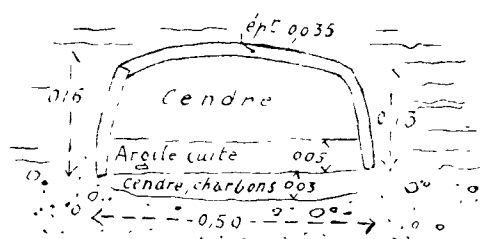 épr 0,035
0,16
Cendre
0,13
Argile cuite 0,05
Cendre, charbons 0,03
0,50